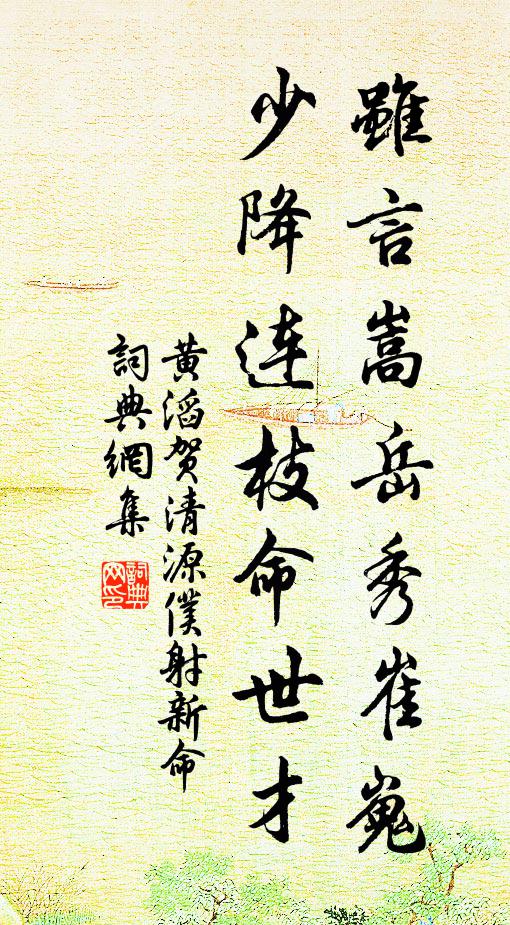 雖言嵩岳秀崔嵬
少降連枝命世才
黄滔贺清源僕射新命
詞典網集
詞典网印